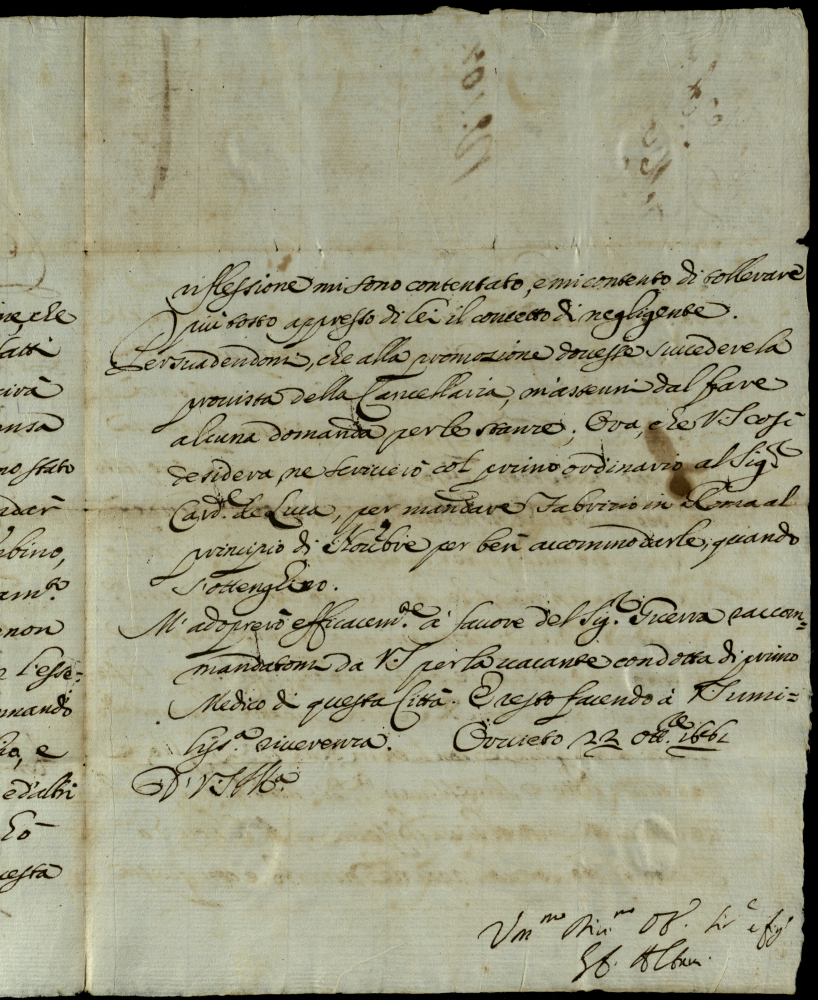 ne, che
fatti
cirà
ensa
no stato
ader
bino,
am.te
non
l'esse=
mando
io, e
ed'altri
hò
uesta
riflessione mi sono contentato, e mi contento di tollerare
più tosto appresso di lei il concetto di negligente.
Persuadendomi, che alla promozione dovesse succedere la
provista della Cancellaria, m'astenni dal fare
alcuna domanda per le stanze; Ora, che V.S. così
desidera, ne scriverò col primo ordinario al Sig.r
Card.le de Luca, per mandare Fabrizio in Roma al
principio di 9bre per ben accommodarle, quando
s'ottenghino.
M'adoprerò efficacem.te à favore del Sig.r Guerra raccom=
mandatomi da V.S. per la vacante condotta di primo
Medico di questa Città. E resto facendo à V.S. umi=
liss.a riverenza. Orvieto 22 Ott.bre
D. V.S. Ill.ma
Um.mo